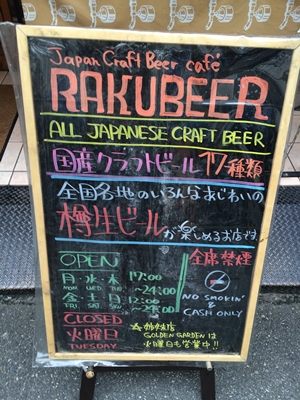 Japan Craft Beer café
RAKUBEER
ALL JAPANESE CRAFT BEER
国産クラフトビール 17種類
全国各地のいろんなあじわいの
樽生ビール
が楽しめるお店です
OPEN
月・水・木 17:00
MON WED THU ~24:00
金・土・日 12:00
FRI SAT SUN ~24:00
CLOSED
火曜日
TUESDAY
全席禁煙
NO SMOKIN'
&
CASH ONLY
☆姉妹店
GOLDEN GARDENは
火曜日も営業中!!